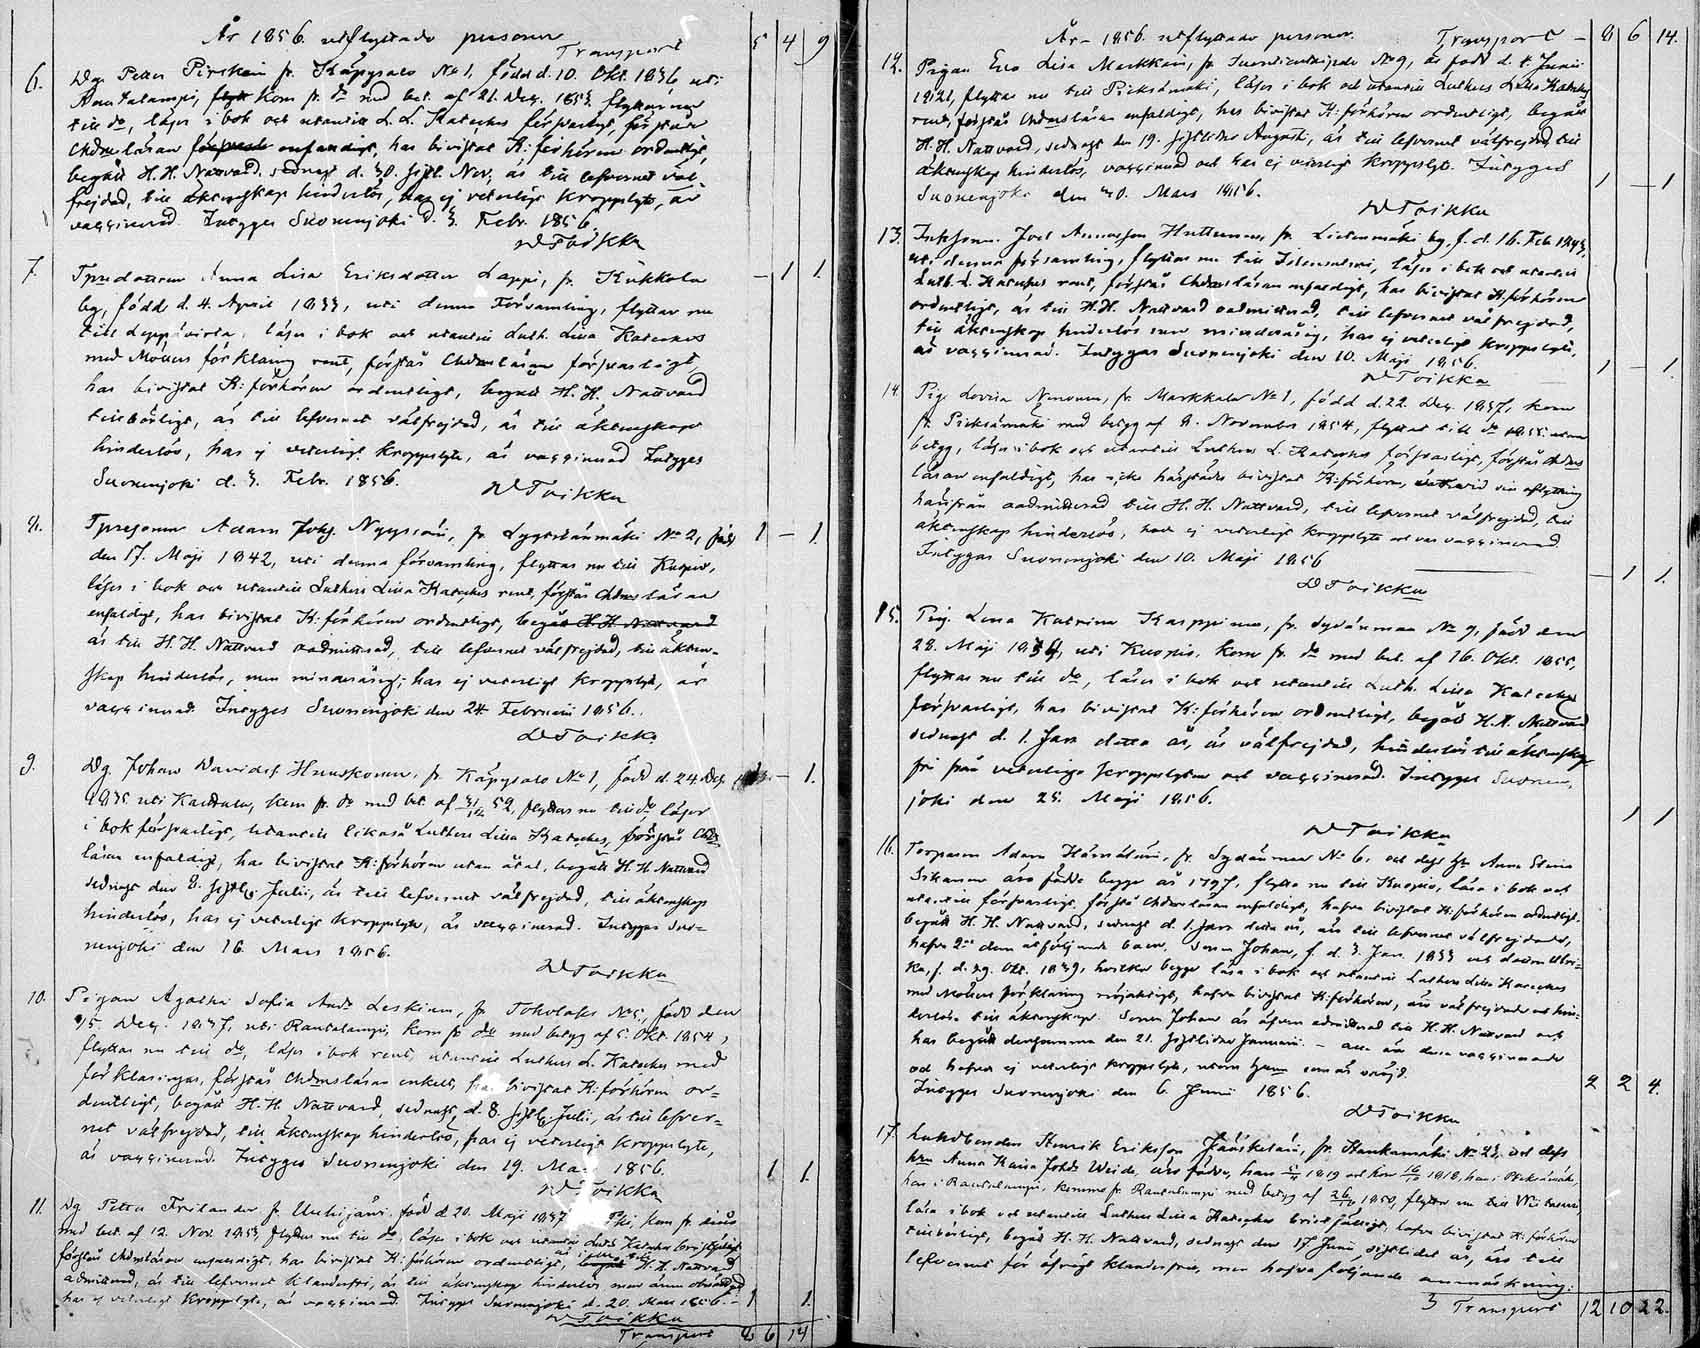 År 1856. utflyttade personer
Transport 5 4 9
6. Dg. Petter Pirskain fr. Käpysalo No 1, född d. 10. Okt. 1836, uti
Rautalampi, kom fr. do med bet. af 21. Dec. 1853, flyttar nu
till do, läser i bok och utantill L. L. Kateches försvarligt, förstår
Chdmsläran enfaldigt, har bivistat K:förhören ordentligt,
begått H. H. Nattvard, sednast d. 30. sistl. Nov., är till lefvernet väl-
frejdad, till äktenskap hinderlös, har ej veterligt kroppslyte, är
vaccinerad. Intygas Suonenjoki d. 3. Febr. 1856.
DToikka
7. Tpredottren Anna Lisa Eriksdotter Lappi, fr. Kukkola — 1 1.
by, född d. 4. April 1833, uti denna Församling, flyttar nu
till Leppävirta, läser i bok och utantill Luth. Lilla Kateches
med Möllers förklaring rent, förstår Chdmsläran försvarligt,
har bivistat K:förhören ordentligt, begått H. H. Nattvard
tillbörligt, är till lefvernet välfrejdad, är till äktenskap
hinderlös, har ej veterligt kroppslyte, är vaccinerad Intygas
Suonenjoki d. 3. Febr. 1856.
DToikka
8. Tpresonen Adam Johs. Nyyssöin, fr. Lyytilänmäki No 2, född 1 — 1.
den 17. Maji 1842, uti denna församling, flyttar nu till Kuopio,
läser i bok och utantill Luthers Lilla Kateches rent, förstår Chdmsläran
enfaldigt, har bivistat K:förhören ordentligt, begått H. H. Nattvard
är till H. H. Nattvard oadmitterad, till lefvernet välfrejdad, till äkten-
skap hinderlös, men minderårig; har ej veterligt kroppslyte, är
vaccinerad. Intygas Suonenjoki den 24. Februari 1856.
DToikka
9. Dg. Johan Davidss Huuskonen, fr. Käpysalo No 1, född d. 24. Dec. — 1.
1835 uti Karttula, kom fr. do med bet. af 52, flyttar nu till do, läser
i bok försvarligt, utantill likaså Luthers Lilla Kateches, förstår Chdms
läran enfaldigt, har bivistat K:förhören utan åtal, begått H. H. Nattvard
sednast den 8. sistl. Julii, är till lefvernet välfrejdad, till äktenskap
hinderlös, har ej veterligt kroppslyte, är vaccinerad. Intygas Suo-
nenjoki den 16 Mars 1856.
DToikka
10. Pigan Agatha Sofia Andd. Leskinen, fr. Toholaks No 5, född den
15. Dec. 1837, uti Rautalampi, kom fr. do med betyg af 5. Okt. 1854,
flyttar nu till do, läser i bok rent, utantill Luthers L. Kateches med
förklaringar, förstår Chdmsläran enkelt, har bivistat K:förhören or-
dentligt, begått H. H. Nattvard, sednast d. 8. sistl. Julii, är till lefver-
net välfrejdad, till äktenskap hinderlös, har ej veterligt kroppslyte,
är vaccinerad. Intygas Suonenjoki den 19. Mars 1856. 1 1.
DToikka
11. Dg. Petter Frilander fr. född d. 20. Maji 1837 kom fr.
med bet. af 12. Nov. 1853, flyttar nu till do, läser i bok och utantill Luths Kateches bristfälligt
förstår Chdmsläran enfaldigt, har bivistat K:förhören ordentligt, begått H. H. Nattvard
admitterad, är till lefvernet klanderfri, är till äktenskap hinderlös
har ej veterligt kroppslyte, är vaccinerad. Intygas Suonenjoki d. 20. Mars 1856. 1 1.
DToikka
Transport 8 6 14
År 1856. utflyttade personer.
Transport — 8 6 14.
12. Pigan Eva Lisa Markkain, fr. No 9, är född d. Junii
1821, flyttar nu till Pieksämäki, läser i bok och utantill Luthers Lilla Kateches
rent, förstår Chdmsläran enfaldigt, har bivistat K:förhören ordentligt, begått
H. H. Nattvard, sednast den 19. sistlidne Augusti, är till lefvernet välfrejdad, till
äktenskap hinderlös, vaccinerad och har ej veterligt kroppslyte. Intygas
Suonenjoki den 30. Mars 1856. 1 — 1
DToikka
13. Inhyson. Joel Huttunen, fr. Lietenmäki by, f. d. 16. Feb. 1843,
uti denna församling, flyttar nu till läser i bok och utantill
Luth. L. Kateches rent, förstår Chdmsläran enfaldigt, har bivistat K:förhören
ordentligt, är till H. H. Nattvard oadmitterad, till lefvernet välfrejdad,
till äktenskap hinderlös men minderårig, har ej veterligt kroppslyte,
är vaccinerad. Intygas Suonenjoki den 10. Maji 1856. 1 — 1.
DToikka
14. Pig. Lovisa Nenonen, fr. Markkala No 1, född d. 22. Dec. 1837, kom
fr. Pieksämäki med betyg af 8. November 1854, flyttat till do 1855 utan
betyg, läser i bok och utantill Luthers L. Kateches försvarligt, förstår Chdms
läran enfaldigt, har icke härstädes bivistat K:förhören, vid sin afflyttning
härifrån oadmitterad till H. H. Nattvard, till lefvernet välfrejdad, till
äktenskap hinderlös, hade ej veterligt kroppslyte och var vaccinerad.
Intygas Suonenjoki den 10. Maji 1856
— 1 1.
DToikka
15. Pig. Lena Katrina Karppinen, fr. Sydänmaa No 9, född den
28. Maji 1834, uti Kuopio, kom fr. do med bet. af 16. Okt. 1855,
flyttar nu till do, läser i bok och utantill Luth. Lilla Kateches
försvarligt, har bivistat K:förhören ordentligt, begått H. H. Nattvard
sednast d. 1. Jan detta år, är välfrejdad, hinderlös till äktenskap
fri från veterliga kroppslyten och vaccinerad. Intygas Suonen-
joki den 25. Maji 1856.
1 1
DToikka
16. Torparen Adam Hämäläin, fr. Sydänmaa No 6, och dess H. Anna Stina
Sikanen äro födda begge år 1797, flytta nu till Kuopio, läsa i bok och
utantill försvarligt, förstå Chdmsläran enfaldigt, hafva bivistat K:förhören ordentligt,
begått H. H. Nattvard, sednast d. 1. Jan detta år, äro till lefvernet välfrejdade,
hafva 2ne dem åtföljande barn, sonen Johan, f. d. 3. Jan. 1833 och dottren Ulri-
ka, f. d. 29. Okt. 1839, hvilka begge läsa i bok och utantill Luthers Lilla Kateches
med Möllers förklaring nöjaktigt, hafva bivistat K:förhören, äro välfrejdade och hin-
derlösa till äktenskap. Sonen Johan är äfven admitterad till H. H. Nattvard och
har begått densamma den 21. sistlidne Januarii. — alla äro dessa vaccinerade
och hafva ej veterligt kroppslyte, utom som är
Intygas Suonenjoki den 6. Junii 1856. 2 2 4.
DToikka
17. Landbonden Henrik Eriksson Jääskeläin, fr. Hankamäki No 23, och dess
hru Anna Kaisa Johsd. Weide, äro födda, han 1819 och hon 1818, han i Pieksämäki,
hon i Rautalampi, komna fr. Rautalampi med betyg af 1850, flytta nu till
läsa i bok och utantill Luthers Lilla Kateches bristfälligt, hafva bivistat K:förhören
tillbörligt, begått H. H. Nattvard, sednast den 17 Junii sistlidet år, äro till
lefvernet för öfrigt klanderfria, men hafva följande anmärkning:
Transport 12 10 22.